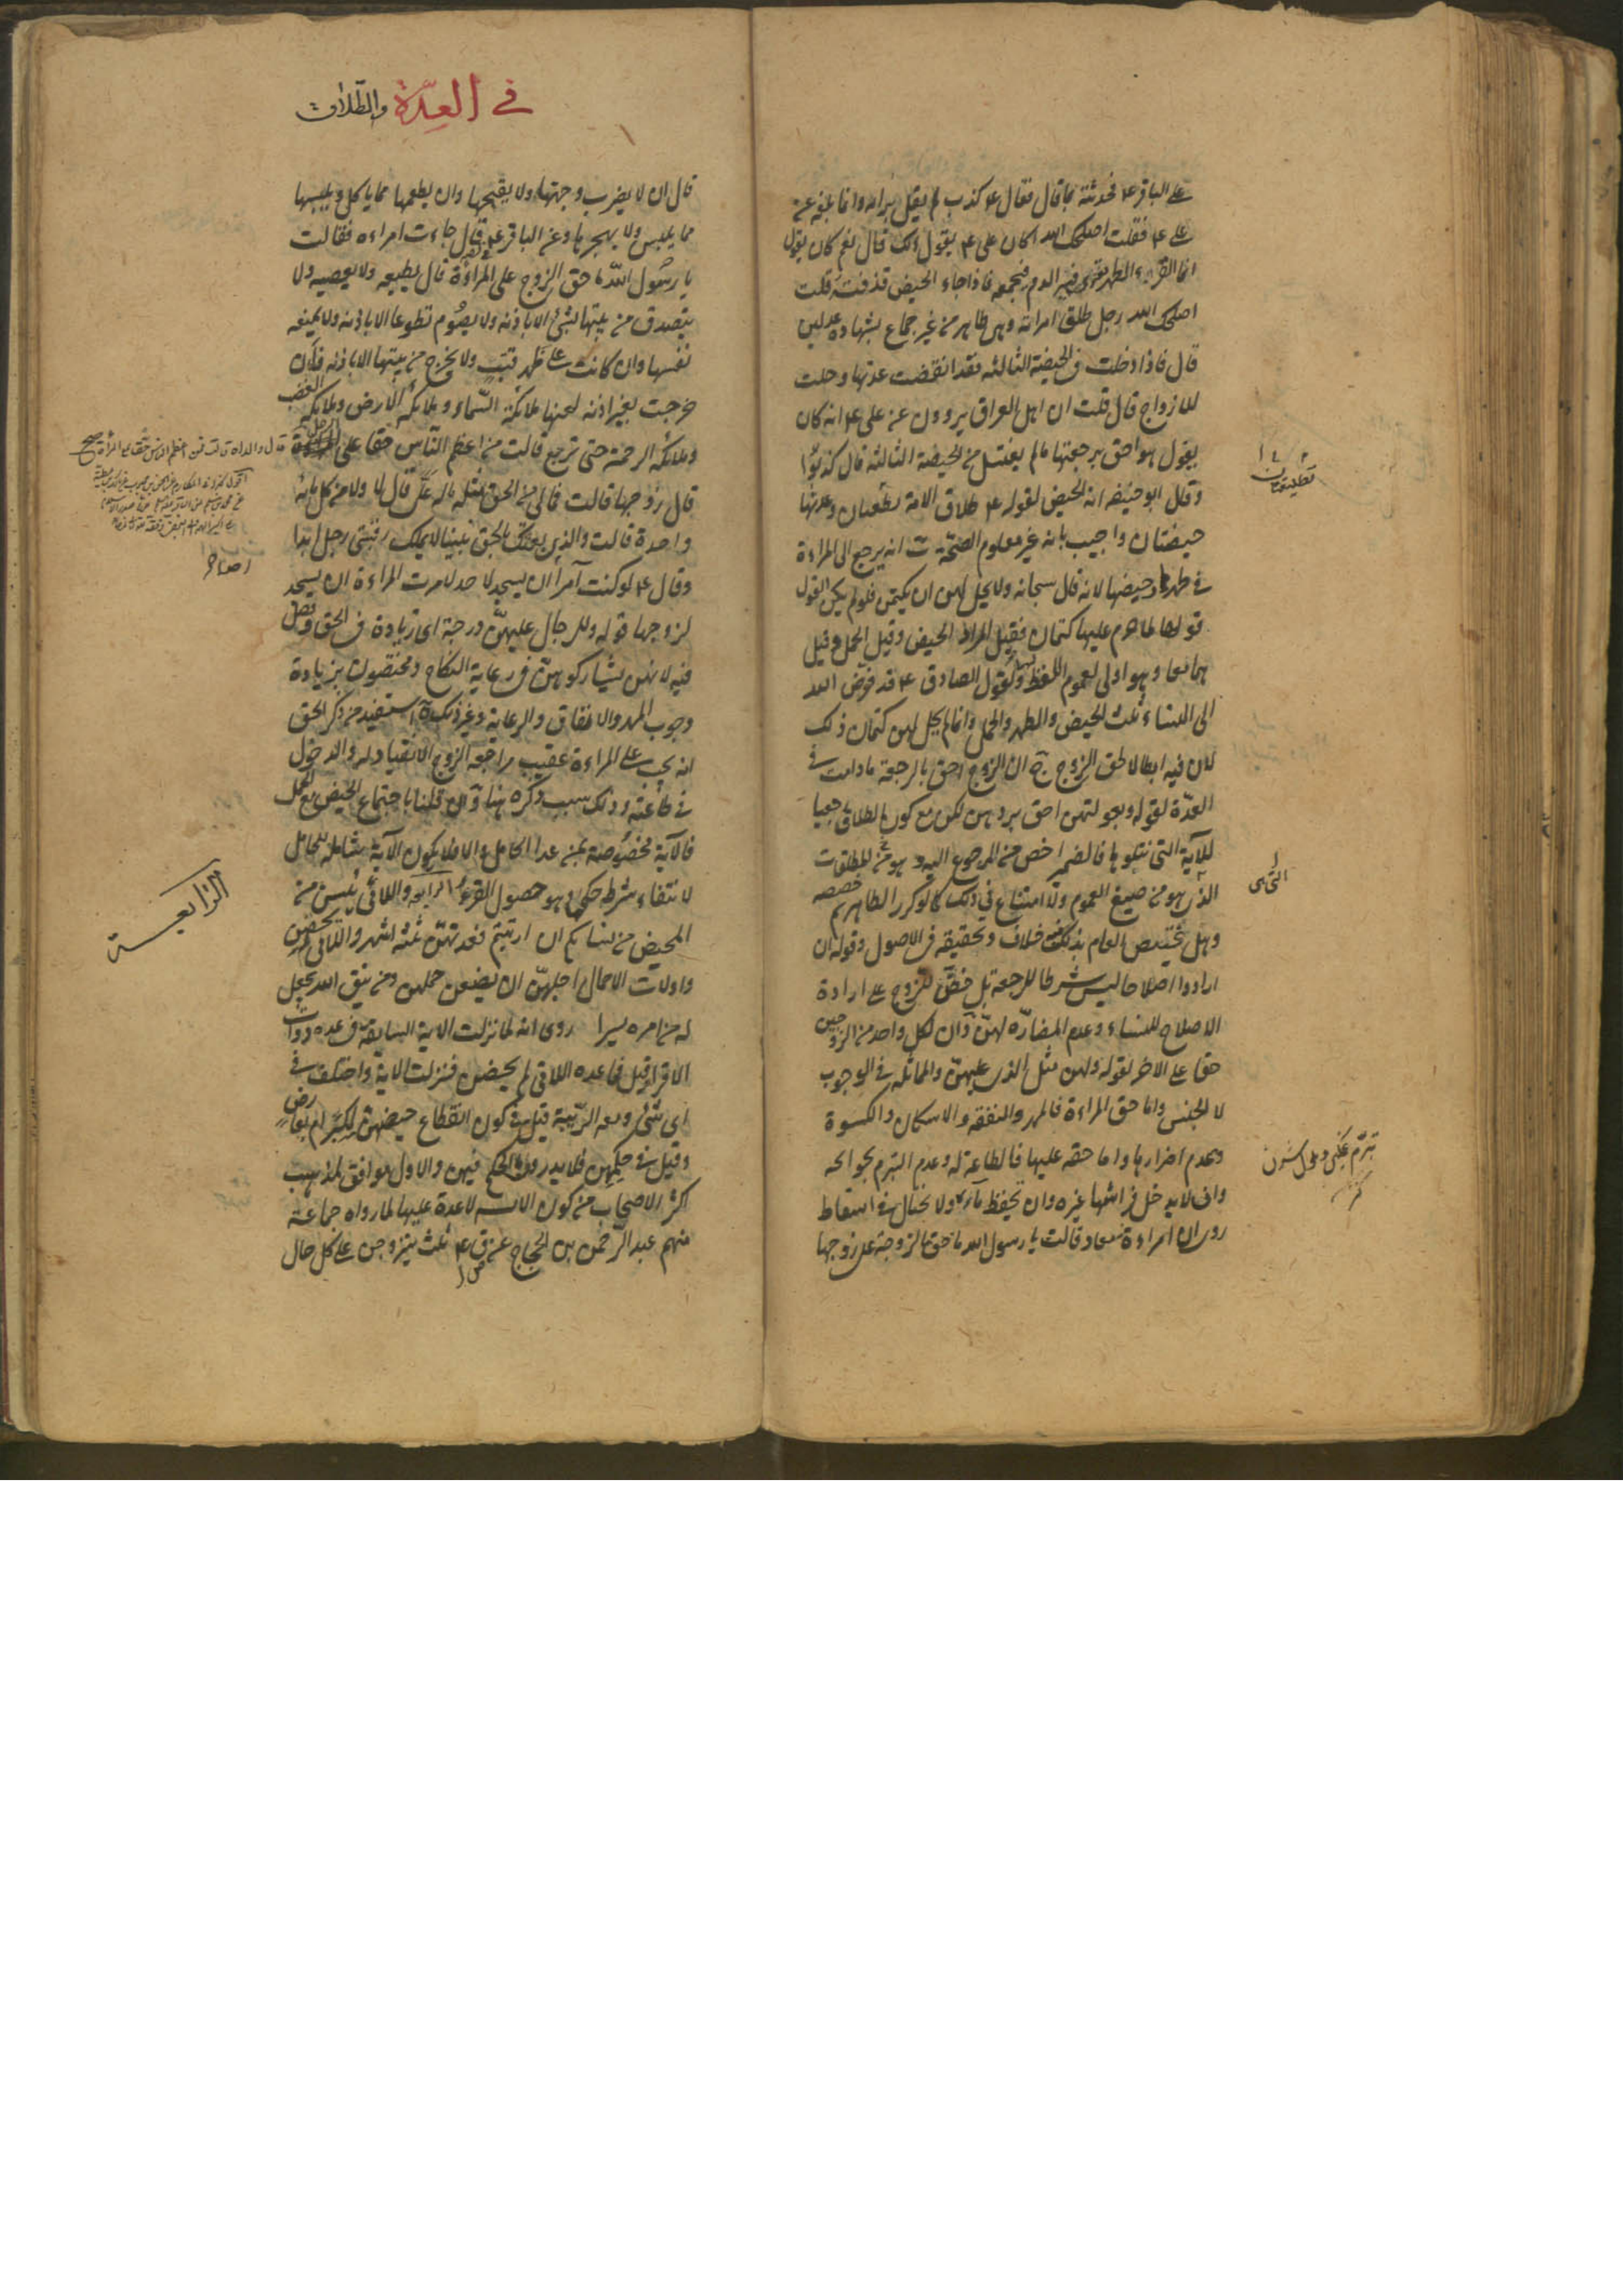 على الباقر ع فحدثته بما قال فقال ع كذب لم يقل برايه وانما بلغه عن
على ع فقلت اصلحك الله اكان على ع يقول ذلك قال نعم كان يقول
انما القرء الطهر يقرى فيه الدم فيجمعه فاذا جاء الحيض قذفته قلت
اصلحك الله رجل طلق امراته وهى طاهر من غير جماع بشهادة عدلين
قال فاذا دخلت فى الحيضة الثالثه فقد انقضت عدتها وحلت
للازواج قال قلت ان اهل العراق يروون عن على ع انه كان
يقول هو احق برجعتها ما لم يغتسل من الحيضة الثالثه قال كذبوا
وقال ابو حنيفه انه الحيض لقوله ع طلاق الامة تطليقتان وعدتها
حيضتان واجيب بانه غير معلوم الصحة انه يرجع الى المراءة
فى طهرها وحيضها لانه قال سبحانه ولا يحل لهن ان يكتمن فلو لم يكن القول
قولها لما حرم عليها كتمان فقيل المراد الحيض وقيل الحمل وقيل
هما معا وهو اولى لعموم اللفظ ولقول الصادق ع قد فوض الله
الى النساء ثلث الحيض والطهر والحمل وانما لم يحل لهن كتمان ذلك
لان فيه ابطالا لحق الزوج ان الزوج احق بالرجعة ما دامت فى
العدة لقوله وبعولتهن احق بردهن لكن مع كون الطلاق رجعيا
للآية التى نتلوها فالضمير اخص من المرجوع اليه وهو المطلقات
الذى هو من صيغ العموم ولا امتناع فى ذلك كما لو كرر الظاهر ثم خصصه
وهل تخصيص العام بذلك فيه خلاف وتحقيقه فى الاصول وقوله ان
ارادوا اصلاحا ليس شرطا للرجعة بل حض للزوج على ارادة
الاصلاح للنساء وعدم المضارة لهن آ ان لكل واحد من الزوجين
حقا على الاخر لقوله ولهن مثل الذى عليهن والمماثله فى الوجوب
لا الجنس واما حق المراءة فالمهر والنفقه والاسكان والكسوة
وعدم اضرارها واما حقه عليها فالطاعة له وعدم التبرم بحوائجه
وان لا يدخل فراشها غيره وان تحفظ ماءه ولا تحتال فى اسقاط
روى ان امراءة معاد قالت يا رسول الله ما حق الزوجة على زوجها
تطليقتان
فى العدة والطلاق
قال ان لا يضرب وجهها ولا يقبحها وان يطعمها مما ياكل ويلبسها
مما يلبس ولا يهجرها وعن الباقر ع قال جاءت امراءه فقالت
يا رسول الله ما حق الزوج على المراءة قال تطيعه ولا تعصيه ولا
يتصدق من بيتها بشئ الا باذنه ولا يصوم تطوعا الا باذنه ولا تمنعه
نفسها وان كانت على ظهر قتب ولا يخرج من بيتها الا باذنه فان
خرجت بغير اذنه لعنها ملائكة السماء وملائكه الارض وملائكه الغضب
وملائكه الرحمة حتى ترجع قالت من اعظم الناس حقا على الرجل
قال زوجها قالت فمالى من الحق مثل ماله على قال لا ولا من كل مائة
واحدة قالت والذى بعثك بالحق نبيا لا يملك رقبتى رجل ابدا
وقال ع لو كنت آمرا ان يسجد لاحد لامرت المراءة ان يسجد
لزوجها قوله وللرجال عليهن درجة اى زيادة فى الحق وفضل
فيه لانهن يشاركوهن فى رعاية النكاح ومختصون بزيادة
وجوب المهر والانفاق والرعاية وغير ذلك استفيد من ذكر الحق
انه يجب على المراءة عقيب مراجعة الزوج الانقياد له والدخول
فى طاعته وذلك سبب ذكره هنا ان قلنا باجتماع الحيض مع الحمل
فالآية مخصوصة بمن عدا الحامل والا فلا يكون الآية شاملة للحامل
لانتفاء شرط حكمها وهو حصول القرء الرابعه واللائى يئسن من
المحيض من نسائكم ان ارتبتم فعدتهن ثلثة اشهر واللائى لم يحضن
واولات الاحمال اجلهن ان يضعن حملهن ومن يتق الله يجعل
له من امره يسرا روى انه لما نزلت الاية السابقه فى عده ذوات
الاقراء قيل فما عده اللاتى لم يحضن فنزلت الاية واختلف فى
اى شئ وقعه الريبة قيل فى كون انقطاع حيضهن لكبر ام لعارض
وقيل فى حكمهن فلا يدرون ما الحكم فيهن والاول موافق لمذهب
اكثر الاصحاب من كون الايسه لا عدة عليها لما رواه جماعة
منهم عبد الرحمن بن الحجاج عن ق ع ثلث يتزوجن على كل حال
الرابعة